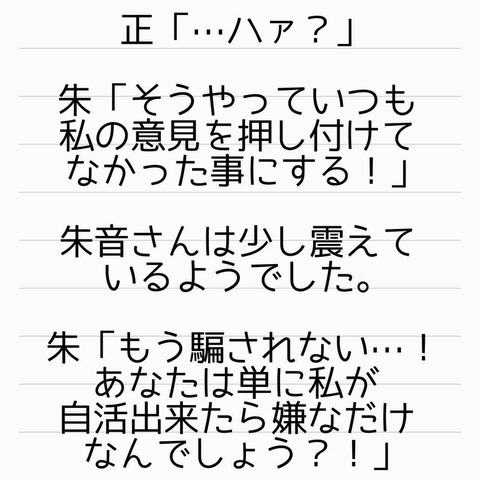 正「…ハァ？」
朱「そうやっていつも
私の意見を押し付けて
なかった事にする！」
朱音さんは少し震えて
いるようでした。
朱「もう騙されない…！
あなたは単に私が
自活出来たら嫌なだけ
なんでしょう？！」